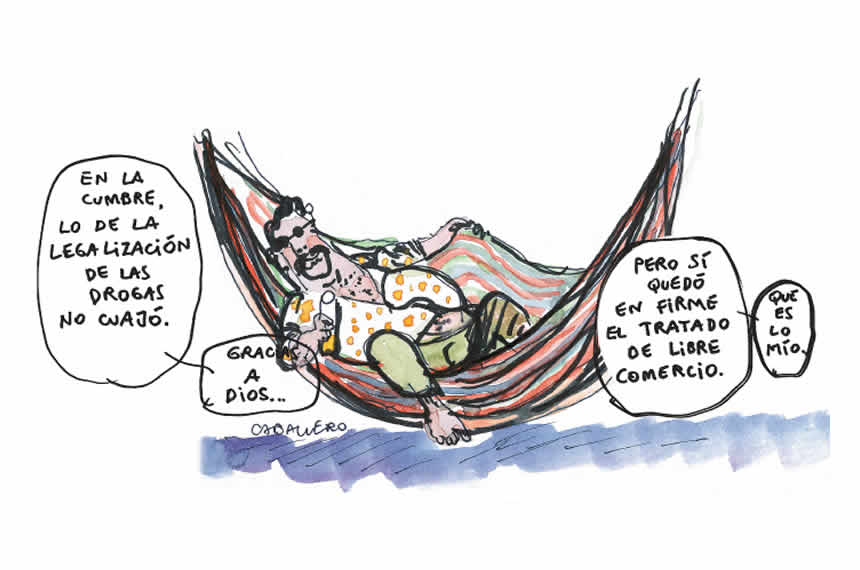 EN LA
CUMBRE,
LO DE LA
LEGALIZACIÓN
DE LAS
DROGAS
NO CUAJÓ.
GRACIAS
A
DIOS...
PERO SÍ
QUEDÓ
EN FIRME
EL TRATADO
DE LIBRE
COMERCIO.
QUE
ES
LO
MÍO.
CABALLERO